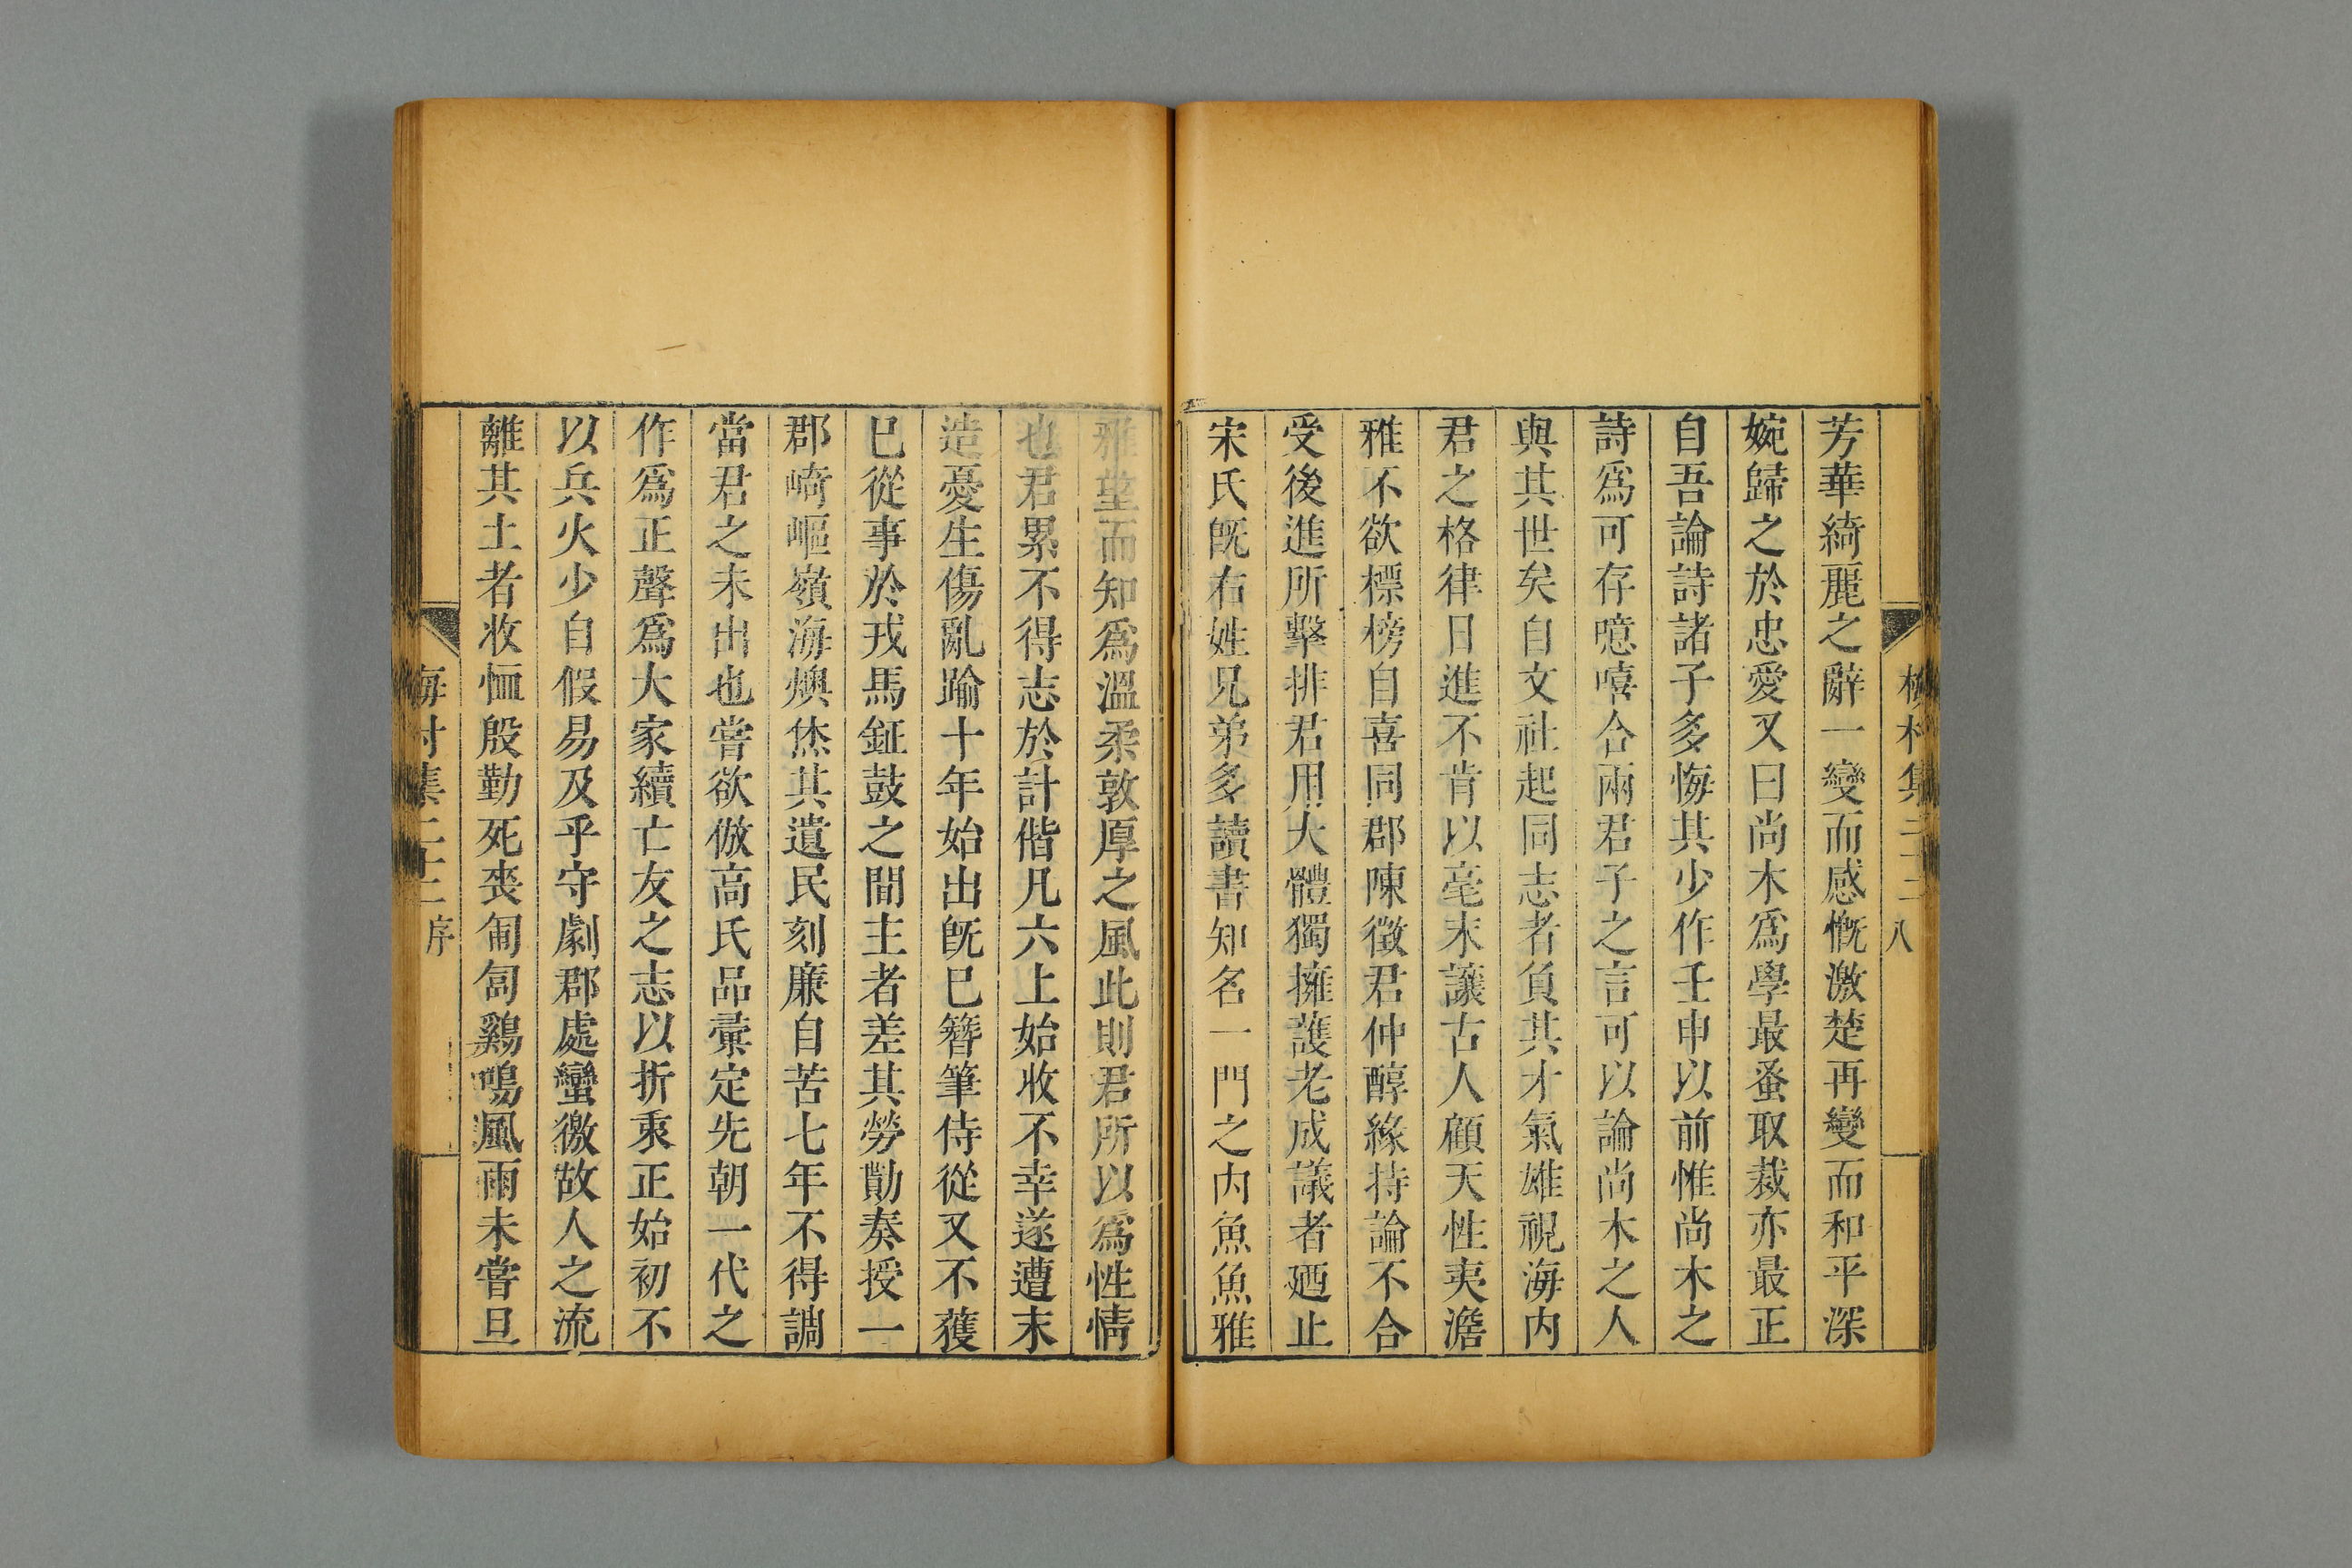 芳華綺麗之辭一變而感慨激楚再變而和平深
婉歸之於忠愛又曰尚木爲學最蚤取裁亦最正
自吾論詩諸子多悔其少作壬申以前惟尚木之
詩爲可存噫嘻合兩君子之言可以論尚木之人
與其世矣自文社起同志者負其才氣雄視海内
君之格律日進不肯以毫末讓古人顧天性夷澹
雅不欲標榜自喜同郡陳徵君仲醇緣持論不合
受後進所擊排君用大體獨擁護老成議者廼止
宋氏旣右姓兄弟多讀書知名一門之内魚魚雅
雅望而知爲溫柔敦厚之風此則君所以爲性情
也君累不得志於計偕凡六上始收不幸遂遭末
造憂生傷亂踰十年始出旣巳簪筆侍從又不獲
巳從事於戎馬鉦鼓之間主者差其勞勩奏授一
郡崎嶇嶺海燠烋其遺民刻廉自苦七年不得調
當君之未出也嘗欲倣高氏品彚定先朝一代之
作爲正聲爲大家續亡友之志以折衷正始初不
以兵火少自假易及乎守劇郡處蠻徼故人之流
離其土者收恤殷勤死喪匍匐鷄鳴風雨未嘗旦
梅村集二十二 序
八